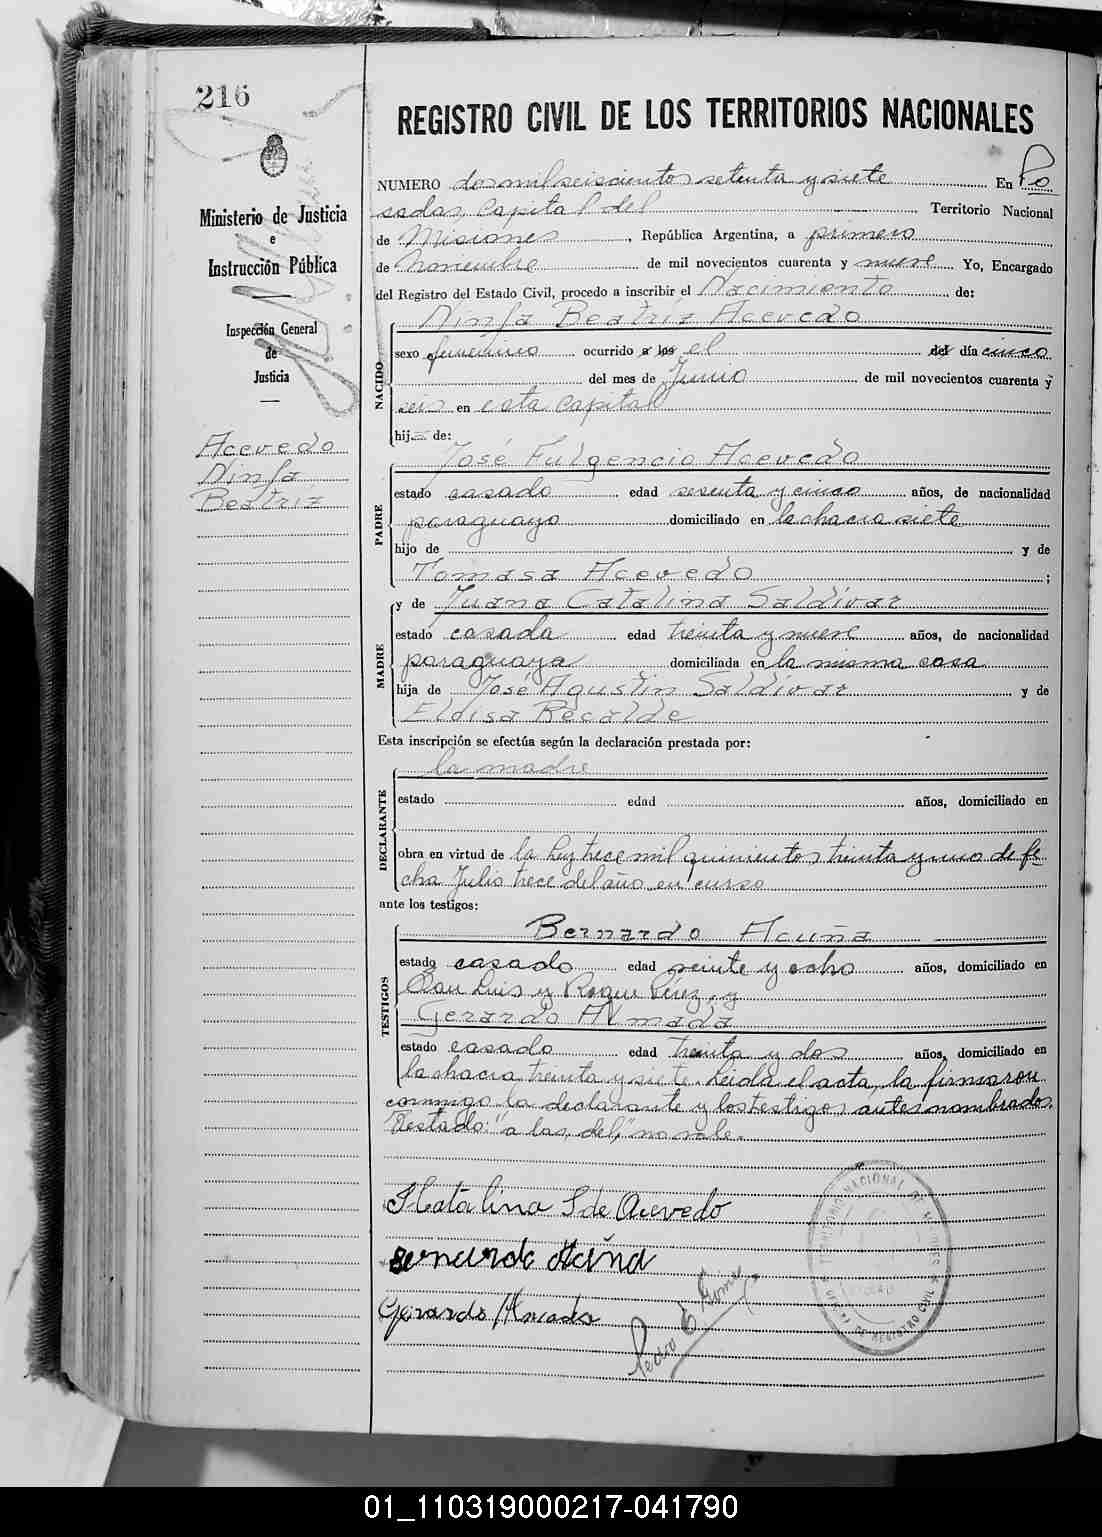 216
Ministerio de Justicia
e
Instrucción Pública
Inspección General
de
Justicia
Acevedo
Ninfa
Beatriz
REGISTRO CIVIL DE LOS TERRITORIOS NACIONALES
NUMERO dos mil seiscientos setenta y siete En Po
sadas, Capital del Territorio Nacional
de Misiones, República Argentina, a primero
de Noviembre de mil novecientos cuarenta y nueve Yo, Encargado
del Registro del Estado Civil, procedo a inscribir el Nacimiento de:
NACIDO
Ninfa Beatriz Acevedo
sexo femenino ocurrido a las el del día cinco
del mes de Junio de mil novecientos cuarenta y
seis en esta Capital
hija de:
PADRE
José Fulgencio Acevedo
estado casado edad sesenta y cinco años, de nacionalidad
paraguayo domiciliado en la chacra siete
hijo de y de
Tomasa Acevedo;
MADRE
y de Juana Catalina Saldívar
estado casada edad treinta y nueve años, de nacionalidad
paraguaya domiciliada en la misma casa
hija de José Agustín Saldívar y de
Eloisa Recalde
Esta inscripción se efectúa según la declaración prestada por:
DECLARANTE
la madre
estado edad años, domiciliado en
obra en virtud de la Ley trece mil quinientos treinta y uno de fe
cha Julio trece del año en curso
ante los testigos:
TESTIGOS
Bernardo Acuña
estado casado edad veinte y ocho años, domiciliado en
San Luis y Roque Pérez, y
Gerardo Almada
estado casado edad treinta y dos años, domiciliado en
la chacra treinta y siete. Leida el acta, la firmaron
conmigo la declarante y los testigos antes nombrados.
Testado: "a las, del," no vale.
J Catalina S de Acevedo
Bernardo Acuña
Gerardo Almada
Pedro E.
TERRITORIO NACIONAL DE MISIONES
REGISTRO CIVIL
01_110319000217-041790